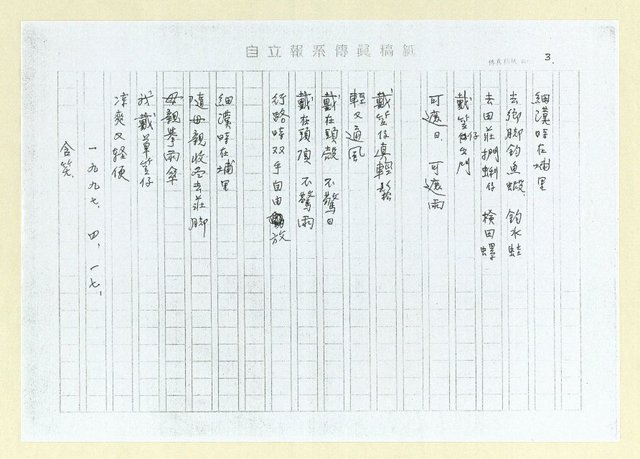 自立報系傳眞稿紙
3.
細漢時在埔里
去鄉脚釣魚蝦、釣水蛙
去田庄捫蜊仔 檢田螺
戴笠仔出門
可遮日、可遮雨
戴笠仔真輕鬆
輕又通風
戴在頭殼 不驚日
戴在頭頂 不驚雨
行路時双手自由放
細漢時在埔里
隨母親收冬去莊脚
母親拳雨傘
我戴草笠仔
凉爽又輕便
一九九七、四、一七、
含笑